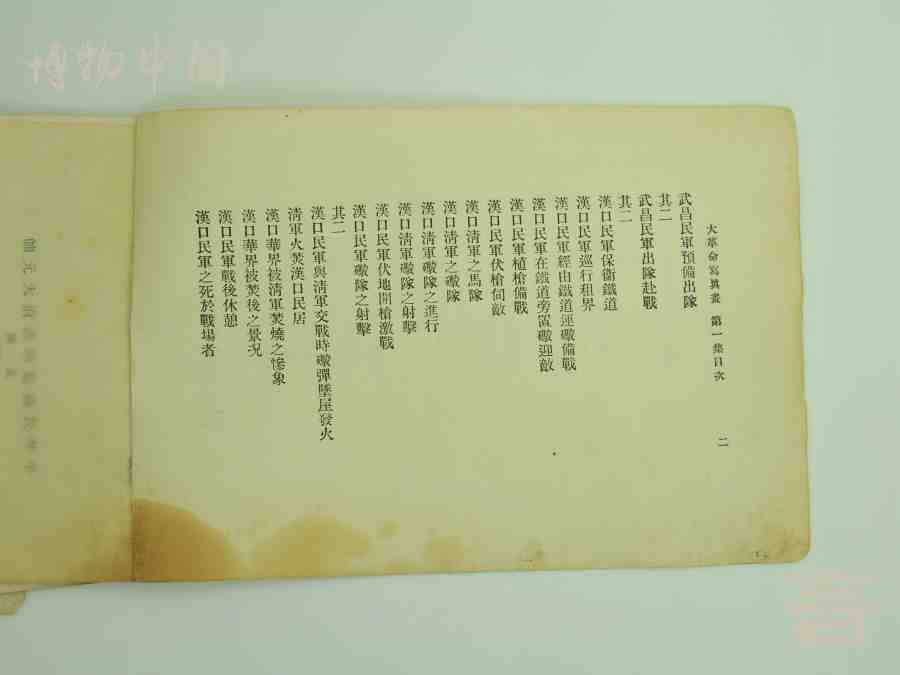 博物中国
大革命寫眞畫 第一集目次
二
武昌民軍預備出隊
其二
武昌民軍出隊赴戰
其二
漢口民軍保衞鐵道
漢口民軍巡行租界
漢口民軍經由鐵道運礮備戰
漢口民軍在鐵道旁置礮迎敵
漢口民軍植槍備戰
漢口民軍伏槍伺敵
漢口淸軍之馬隊
漢口淸軍之礮隊
漢口淸軍礮隊之進行
漢口淸軍礮隊之射擊
漢口民軍伏地開槍激戰
漢口民軍礮隊之射擊
其二
漢口民軍與淸軍交戰時礮彈墜屋發火
淸軍火焚漢口民居
漢口華界被淸軍焚燒之慘象
漢口華界被焚後之景况
漢口民軍戰後休憩
漢口民軍之死於戰場者